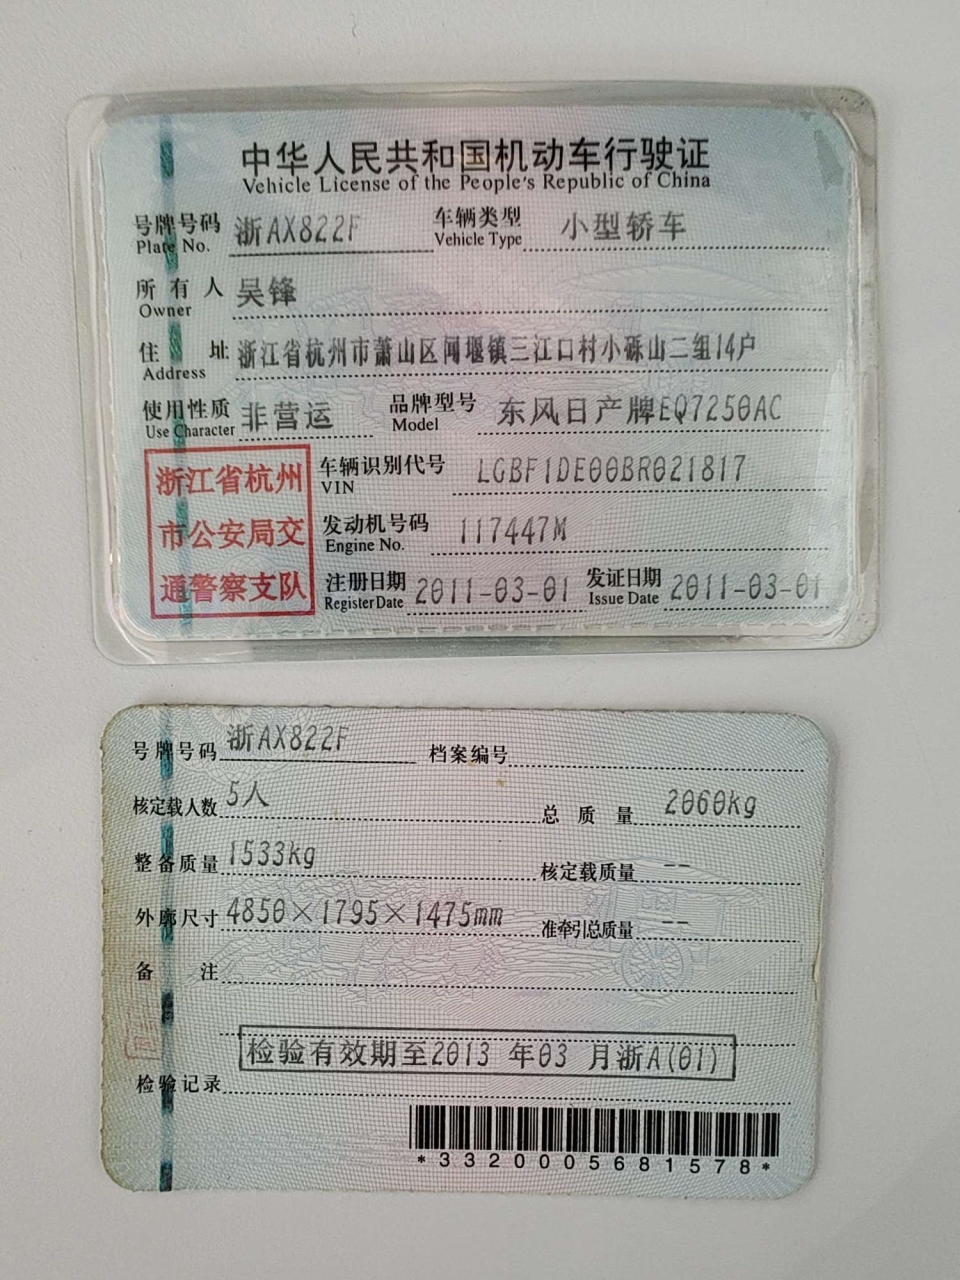 中华人民共和国机动车行驶证
Vehicle License of the People's Republic of China
号牌号码 浙AX822F 车辆类型 小型轿车
Plate No. Vehicle Type
所有人 吴锋
Owner
住址 浙江省杭州市萧山区闻堰镇三江口村小砾山二组14户
Address
使用性质 非营运 品牌型号 东风日产牌EQ7250AC
Use Character Model
浙江省杭州
市公安局交
通警察支队
车辆识别代号 LGBF1DE00BR021817
VIN
发动机号码 117447M
Engine No.
注册日期 2011-03-01 发证日期 2011-03-01
Register Date Issue Date
号牌号码 浙AX822F 档案编号
核定载人数 5人 总质量 2060kg
整备质量 1533kg 核定载质量 --
外廓尺寸 4850×1795×1475mm 准牵引总质量 --
备注
检验有效期至2013 年03 月浙A(01)
检验记录
*3320005681578*